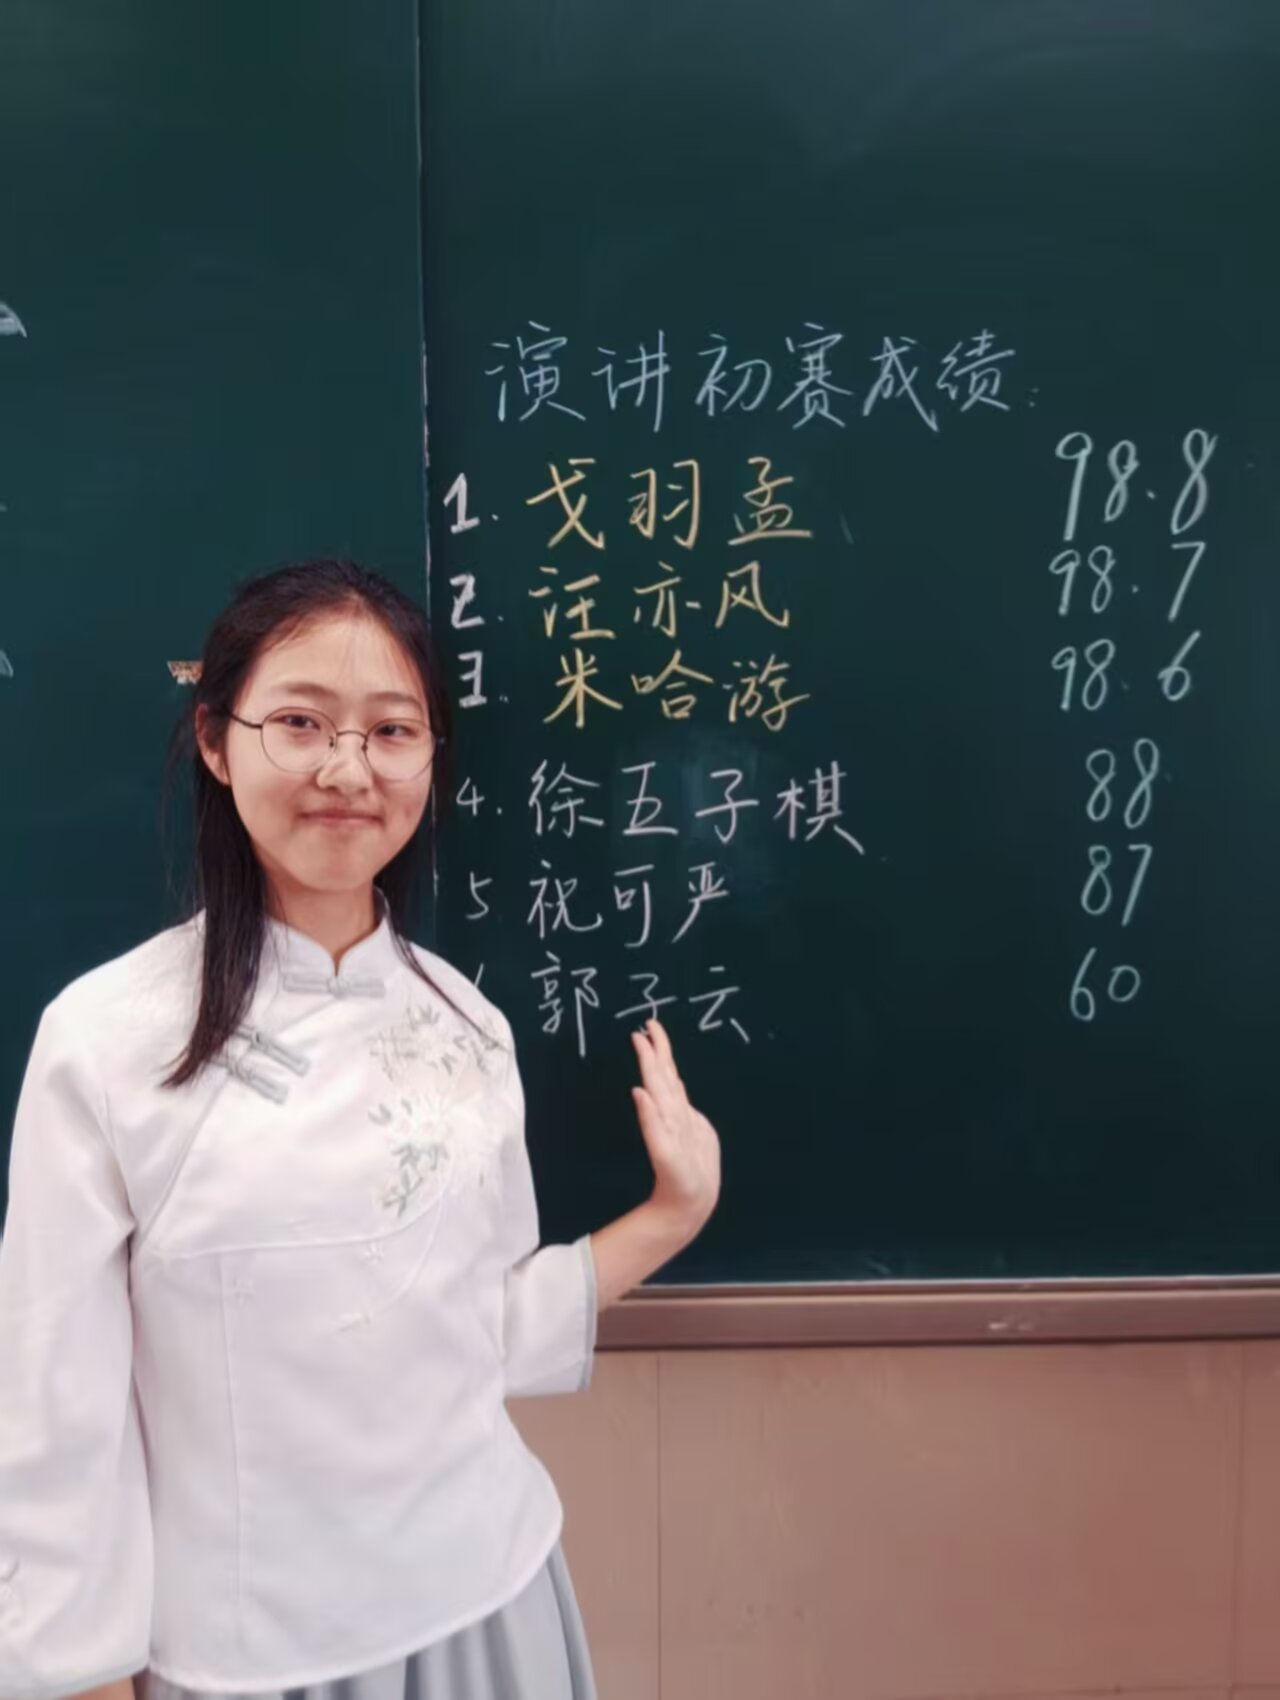 演讲初赛成绩:
1. 戈羽孟 98.8
2. 汪亦风 98.7
3. 米哈游 98.6
4. 徐五子棋 88
5 祝可严 87
郭子云 60